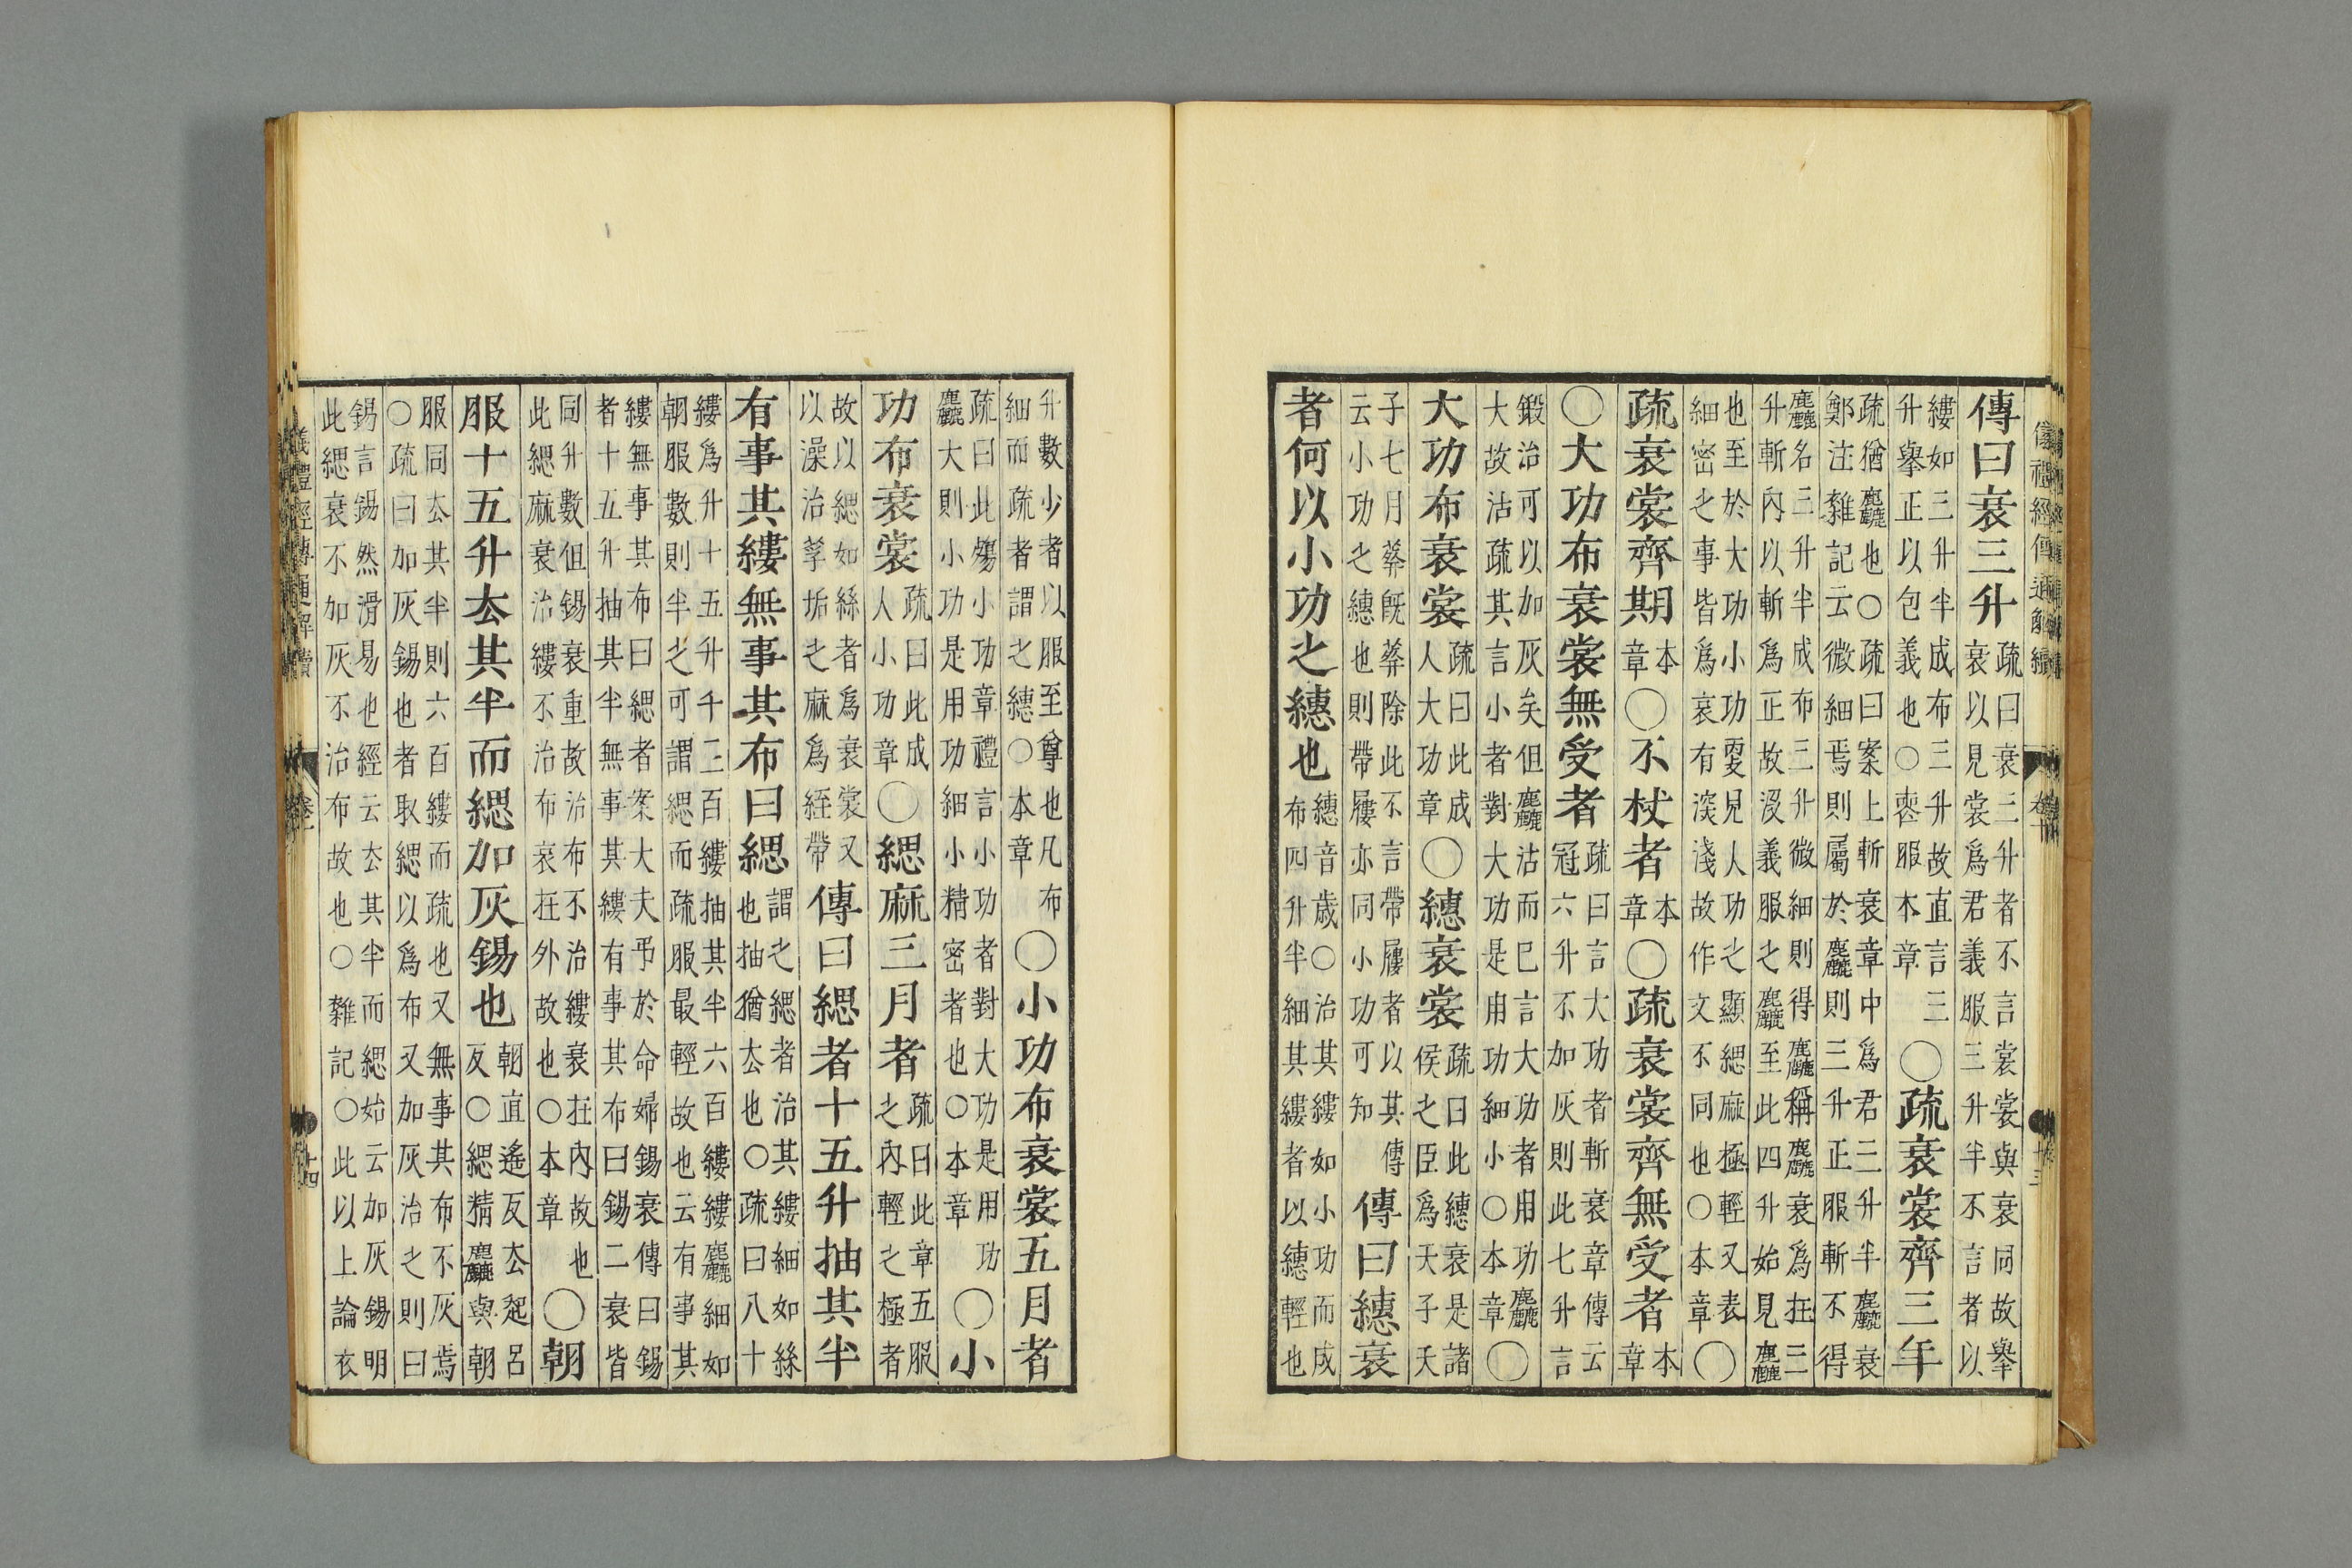 儀禮經傳通解續 卷十 十三
傳曰衰三升疏曰衰三升者不言裳裳與衰同故舉衰以見裳爲君義服三升半不言者以
縷如三升半成布三升故直言三升舉正以包義也○喪服本章○疏衰裳齊三年
疏猶麤也○疏曰案上斬衰章中爲君三升半麤衰鄭注雜記云微細焉則屬於麤則三升正服斬不得
麤名三升半成布三升微細則得麤稱麤衰爲在三升斬內以斬爲正故沒義服之麤至此四升始見麤
也至於大功小功更見人功之顯緦麻極輕又表細密之事皆爲哀有深淺故作文不同也○本章○
疏衰裳齊期本章○不杖者本章○疏衰裳齊無受者本章
○大功布衰裳無受者疏曰言大功者斬衰章傳云冠六升不加灰則此七升言
鍛治可以加灰矣但麤沽而已言大功者用功麤大故沽疏其言小者對大功是用功細小○本章○
大功布衰裳疏曰此成人大功章○繐衰裳疏曰此繐衰是諸侯之臣爲天子天
子七月葬旣葬除此不言帶屨者以其傳云小功之繐也則帶屨亦同小功可知傳曰繐衰
者何以小功之繐也繐音歲○治其縷如小功而成布四升半細其縷者以繐輕也
升數少者以服至尊也凡布細而疏者謂之繐○本章○小功布衰裳五月者
疏曰此殤小功章禮言小功者對大功是用功麤大則小功是用功細小精密者也○本章○小
功布衰裳疏曰此成人小功章○緦麻三月者疏曰此章五服之內輕之極者
故以緦如絲者爲衰裳又以澡治莩垢之麻爲絰帶傳曰緦者十五升抽其半
有事其縷無事其布曰緦謂之緦者治其縷細如絲也抽猶去也○疏曰八十
縷爲升十五升千二百縷抽其半六百縷縷麤細如朝服數則半之可謂緦而疏服最輕故也云有事其
縷無事其布曰緦者案大夫弔於命婦錫衰傳曰錫者十五升抽其半無事其縷有事其布曰錫二衰皆
同升數但錫衰重故治布不治縷衰在內故也此緦麻衰治縷不治布哀在外故也○本章○朝
服十五升去其半而緦加灰錫也朝直遙反去起呂反○緦精麤與朝
服同去其半則六百縷而疏也又無事其布不灰焉○疏曰加灰錫也者取緦以爲布又加灰治之則曰
錫言錫然滑易也經云去其半而緦始云加灰錫明此緦衰不加灰不治布故也○雜記○此以上論衣